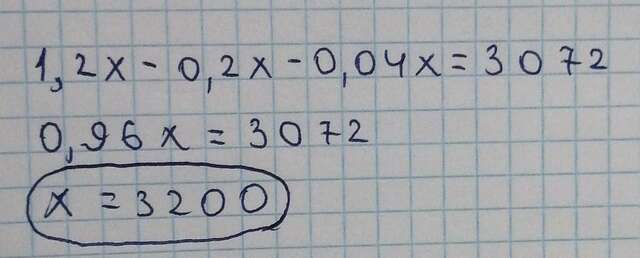 1,2x - 0,2x - 0,04x = 3072
0,96x = 3072
x = 3200